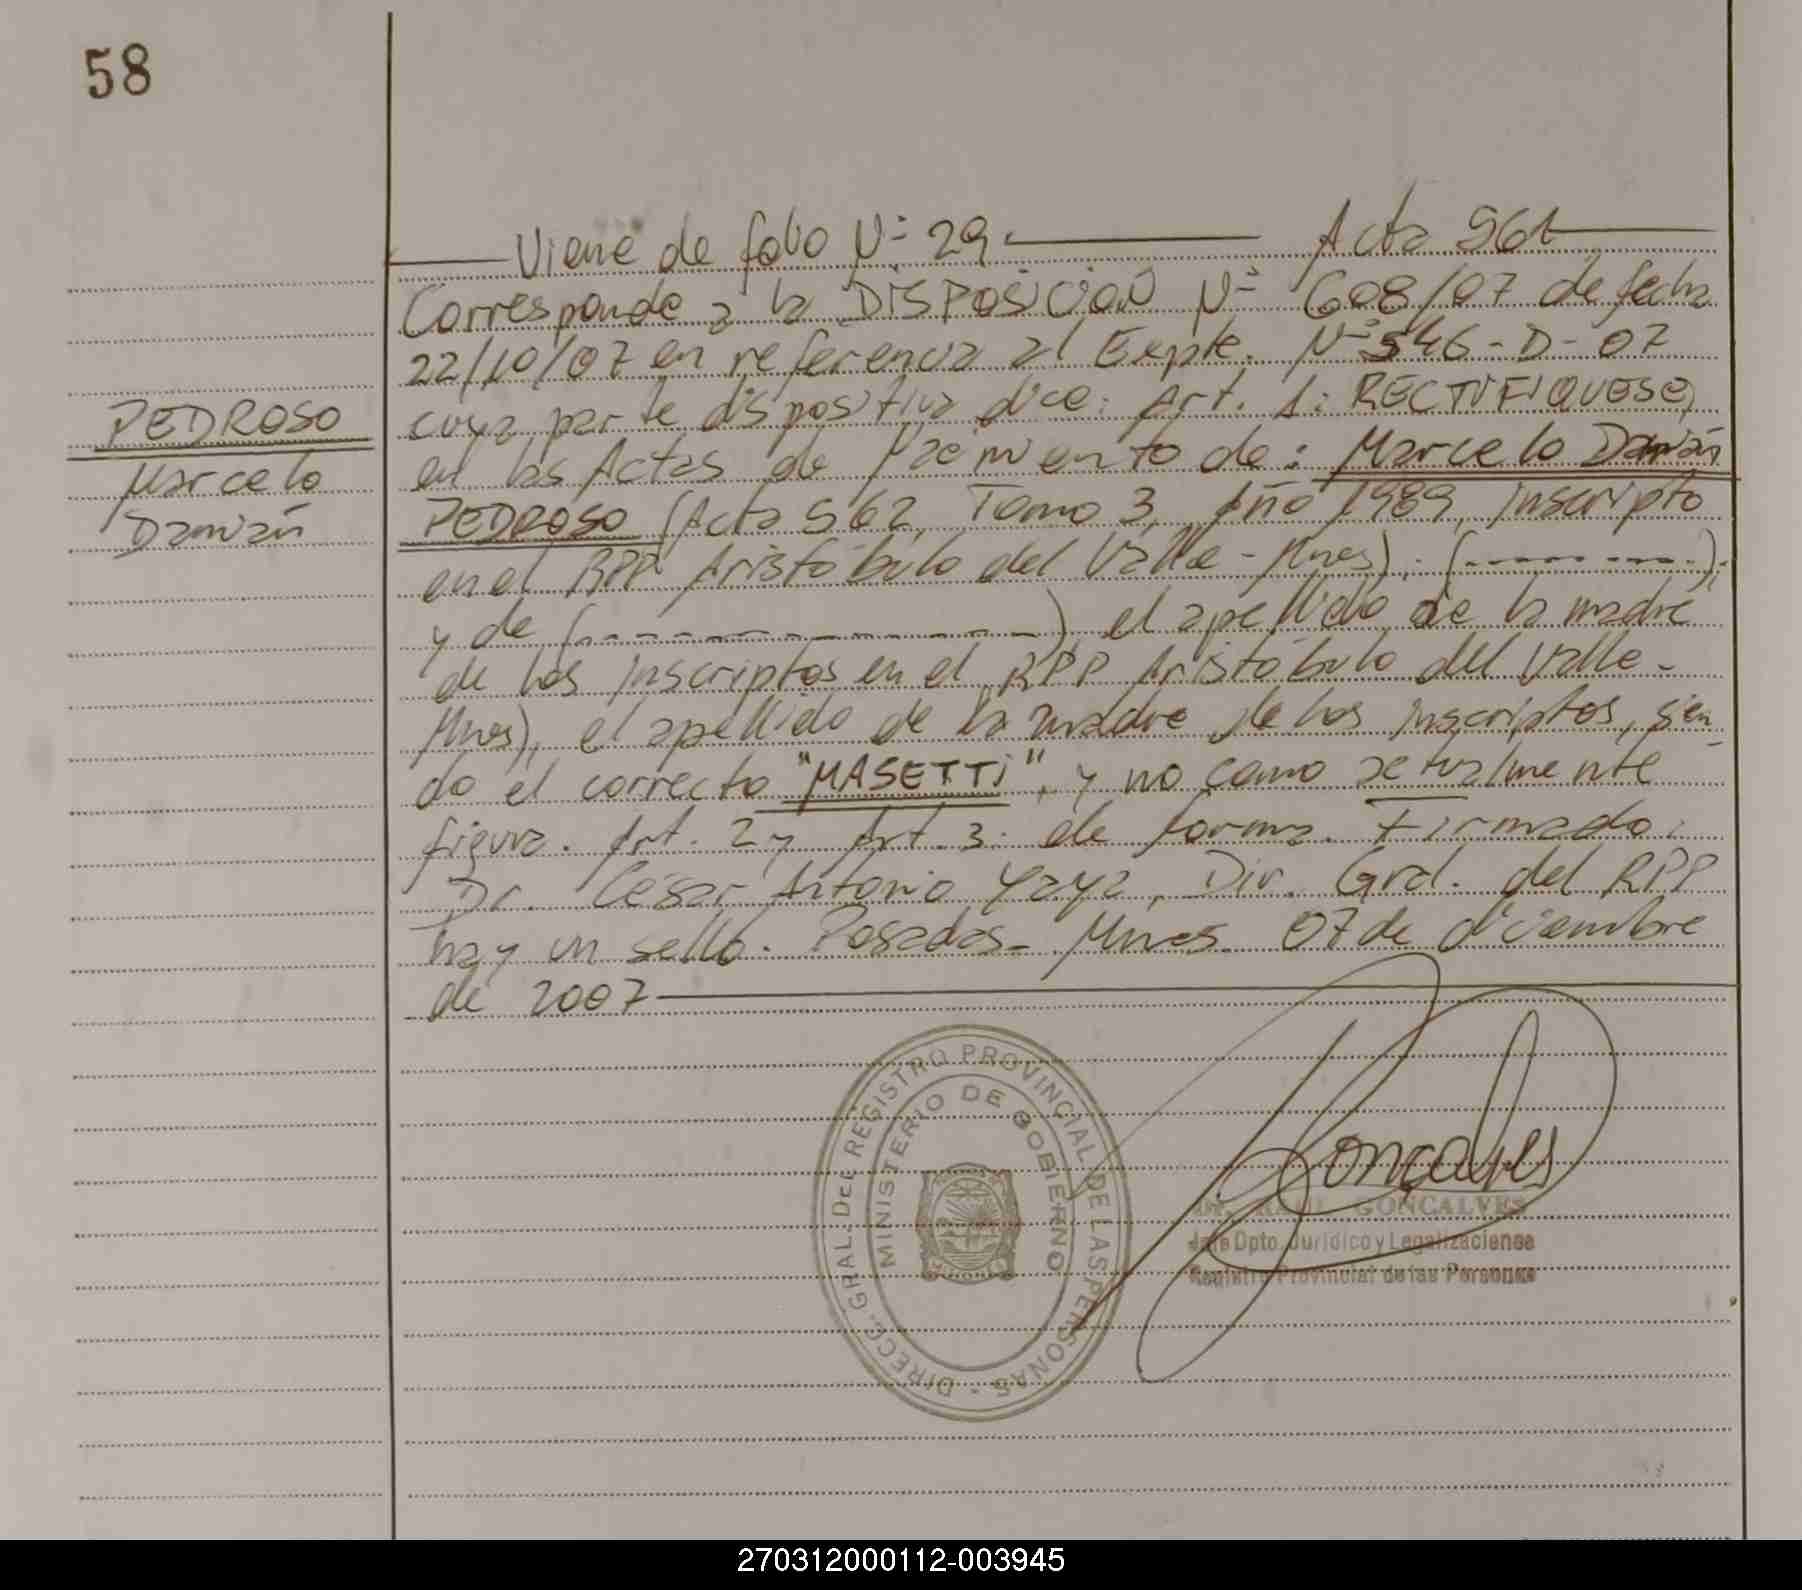 58
Viene de folio Nº 29. Acta 561
Corresponde a la DISPOSICION Nº 608/07 de fecha
22/10/07 en referencia al Expte. Nº 546-D-07
cuya parte dispositiva dice: Art. 1: RECTIFIQUESE,
en las Actas de Nacimiento de: Marcelo Damián
PEDROSO (Acta 562, Tomo 3, Año 1989, inscripto
en el RPP Aristóbulo del Valle - Mnes); (---------);
y de (--------------) el apellido de la madre
de los inscriptos en el RPP Aristóbulo del Valle -
Mnes), el apellido de la madre de los inscriptos, sien
do el correcto "MASETTI", y no como actualmente
figura. Art. 2 y Art. 3: de forma. Firmado:
Dr. César Antonio Yaya, Dir. Gral. del RPP
hay un sello. Posadas - Mnes. 07 de diciembre
de 2007
PEDROSO
Marcelo
Damián
DIRECC. GRAL. DEL REGISTRO PROVINCIAL DE LAS PERSONAS
MINISTERIO DE GOBIERNO
Goncalves
Dr. RAUL GONCALVES
Jefe Dpto. Jurídico y Legalizaciones
Registro Provincial de las Personas
270312000112-003945